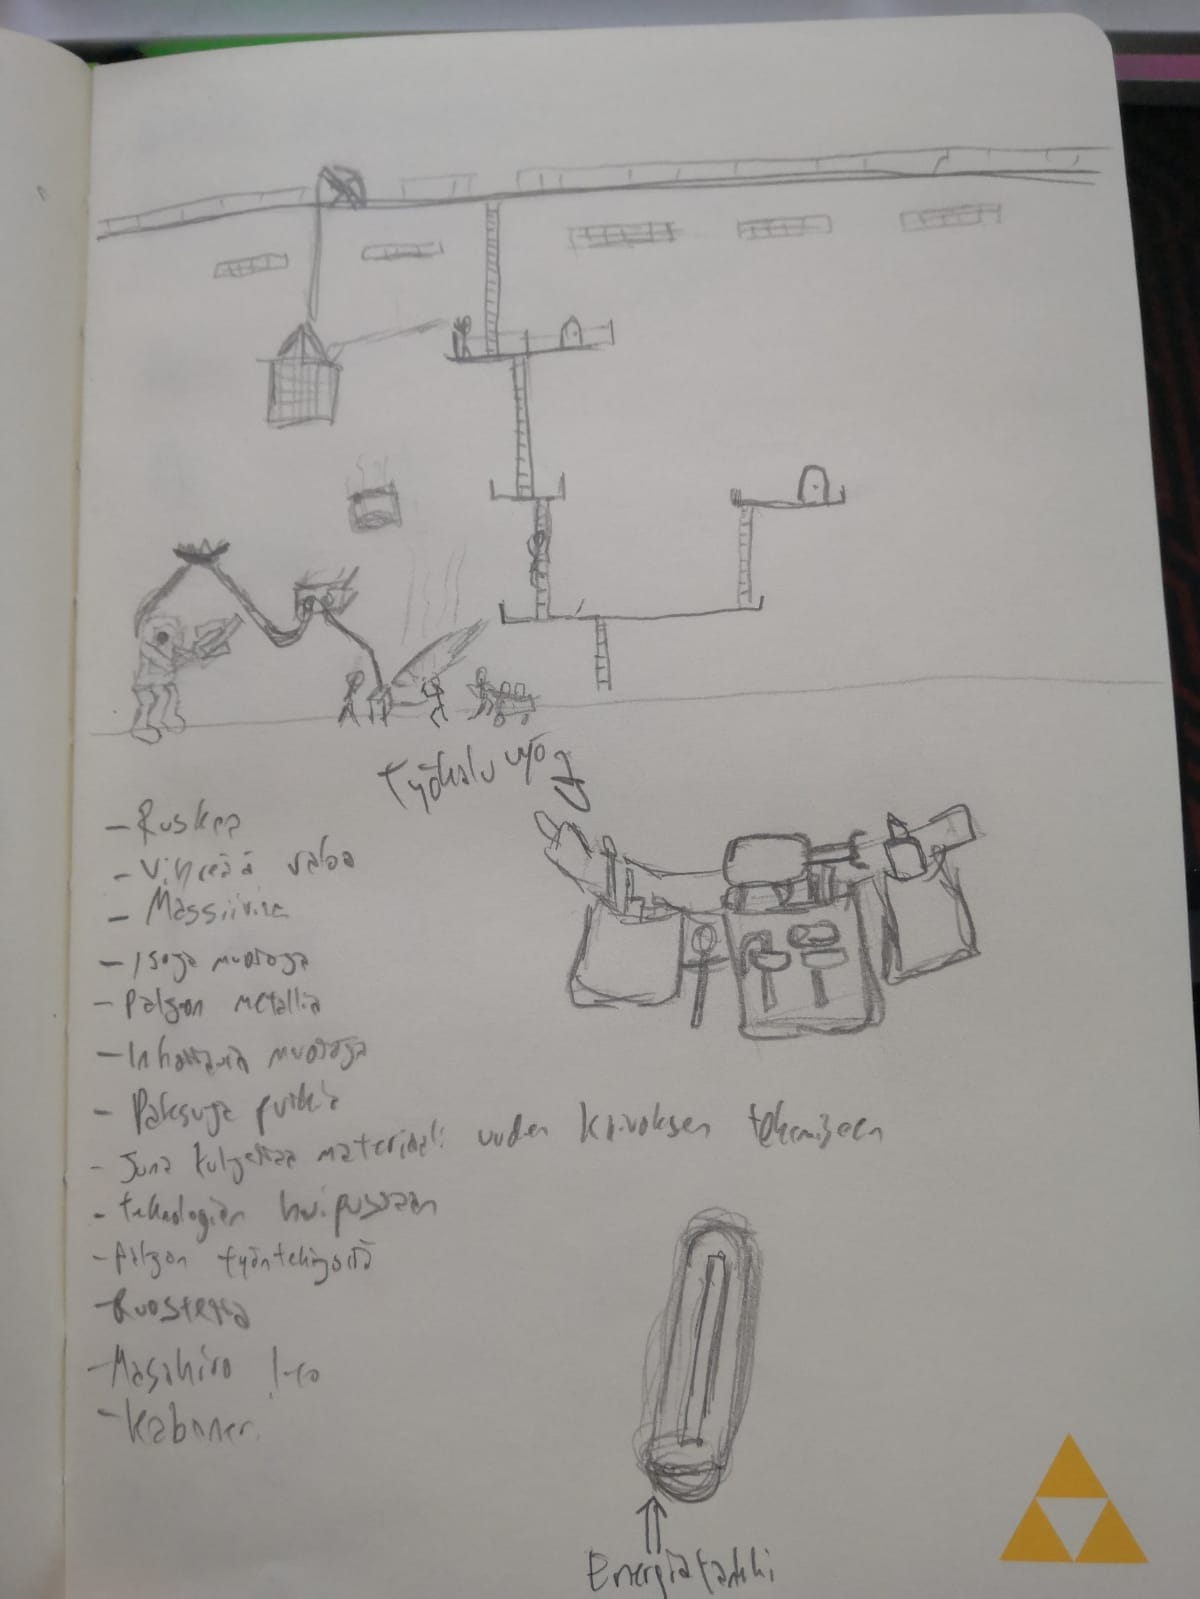 Työkalu vyö
- Ruskea
- Vihreää valoa
- Massiivinen
- Isoja muotoja
- Paljon metallia
- Inhottavia muotoja
- Paksuja putkia
- Juna kuljettaa materiaali uuden kaivoksen tekemiseen
- teknologian huipussaan
- paljon työntekijöitä
- Ruosteista
- Masahiro Ito
- Kabaneri
Energiatankki